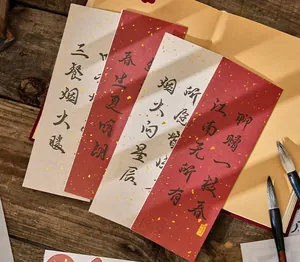 聊赠一枝春
江南无所有
所愿皆
烟火向星辰
春生夏
三餐烟火暖